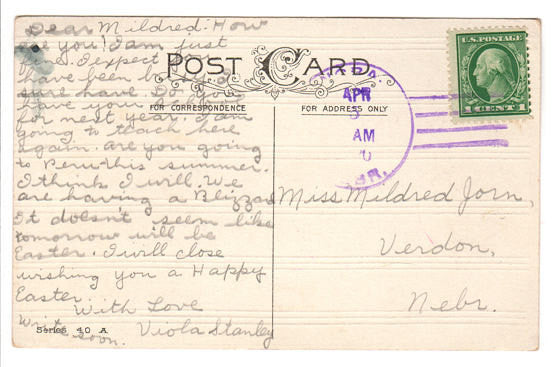 Dear Mildred. How
are you? I am just
fine. I expect you
have been busy. I
sure have. Do you
have your school
for next year. I am
going to teach here
again. are you going
to Peru this summer.
I think I will. We
are having a Blizzard
It doesnt seem like
tomorrow will be
Easter. I will close
wishing you a Happy
Easter.
With Love
Viola Stanley
Write soon.
Series 40 A
POST CARD
FOR CORRESPONDENCE
FOR ADDRESS ONLY
APR
AM
U.S. POSTAGE
1 CENT 1
Miss Mildred Jorn,
Verdon,
Nebr.